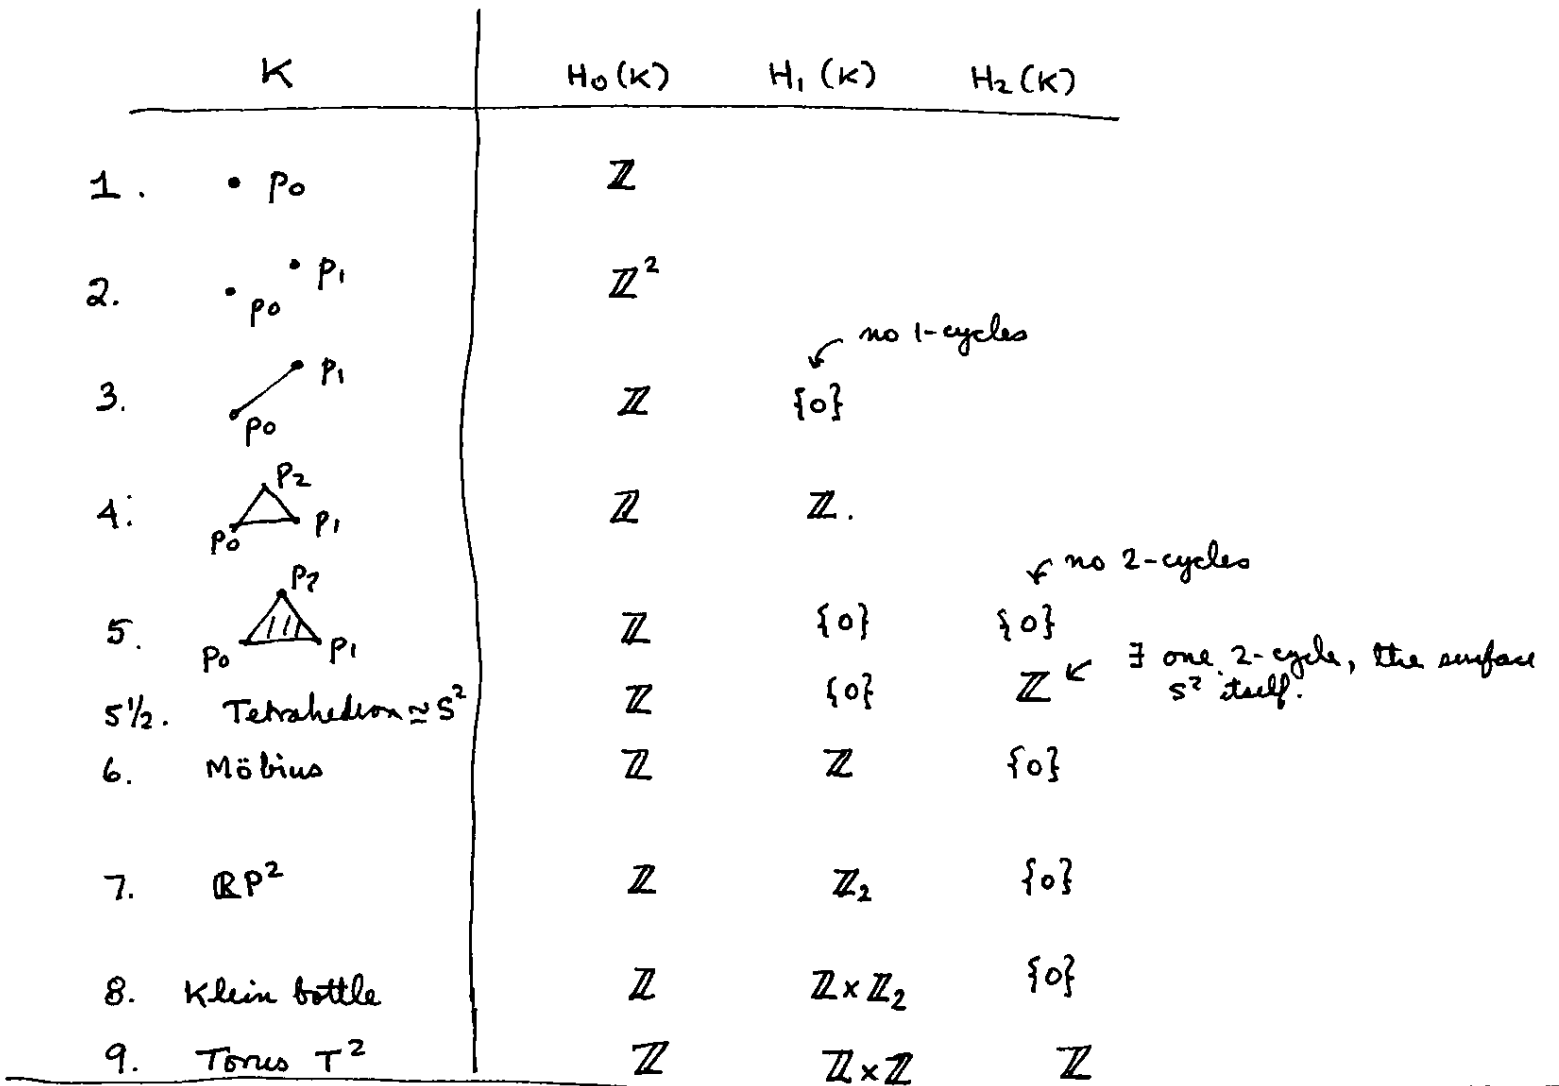 K H₀(K) H₁(K) H₂(K)
1. • p₀ ℤ
2. • p₀ • p₁ ℤ²
no 1-cycles
3. p₀ p₁ ℤ {0}
4. p₀ p₁ p₂ ℤ ℤ.
no 2-cycles
5. p₀ p₁ p₂ ℤ {0} {0}
5½. Tetrahedron ≃ S² ℤ {0} ℤ ∃ one 2-cycle, the surface
S² itself.
6. Möbius ℤ ℤ {0}
7. ℝP² ℤ ℤ₂ {0}
8. Klein bottle ℤ ℤ×ℤ₂ {0}
9. Torus T² ℤ ℤ×ℤ ℤ